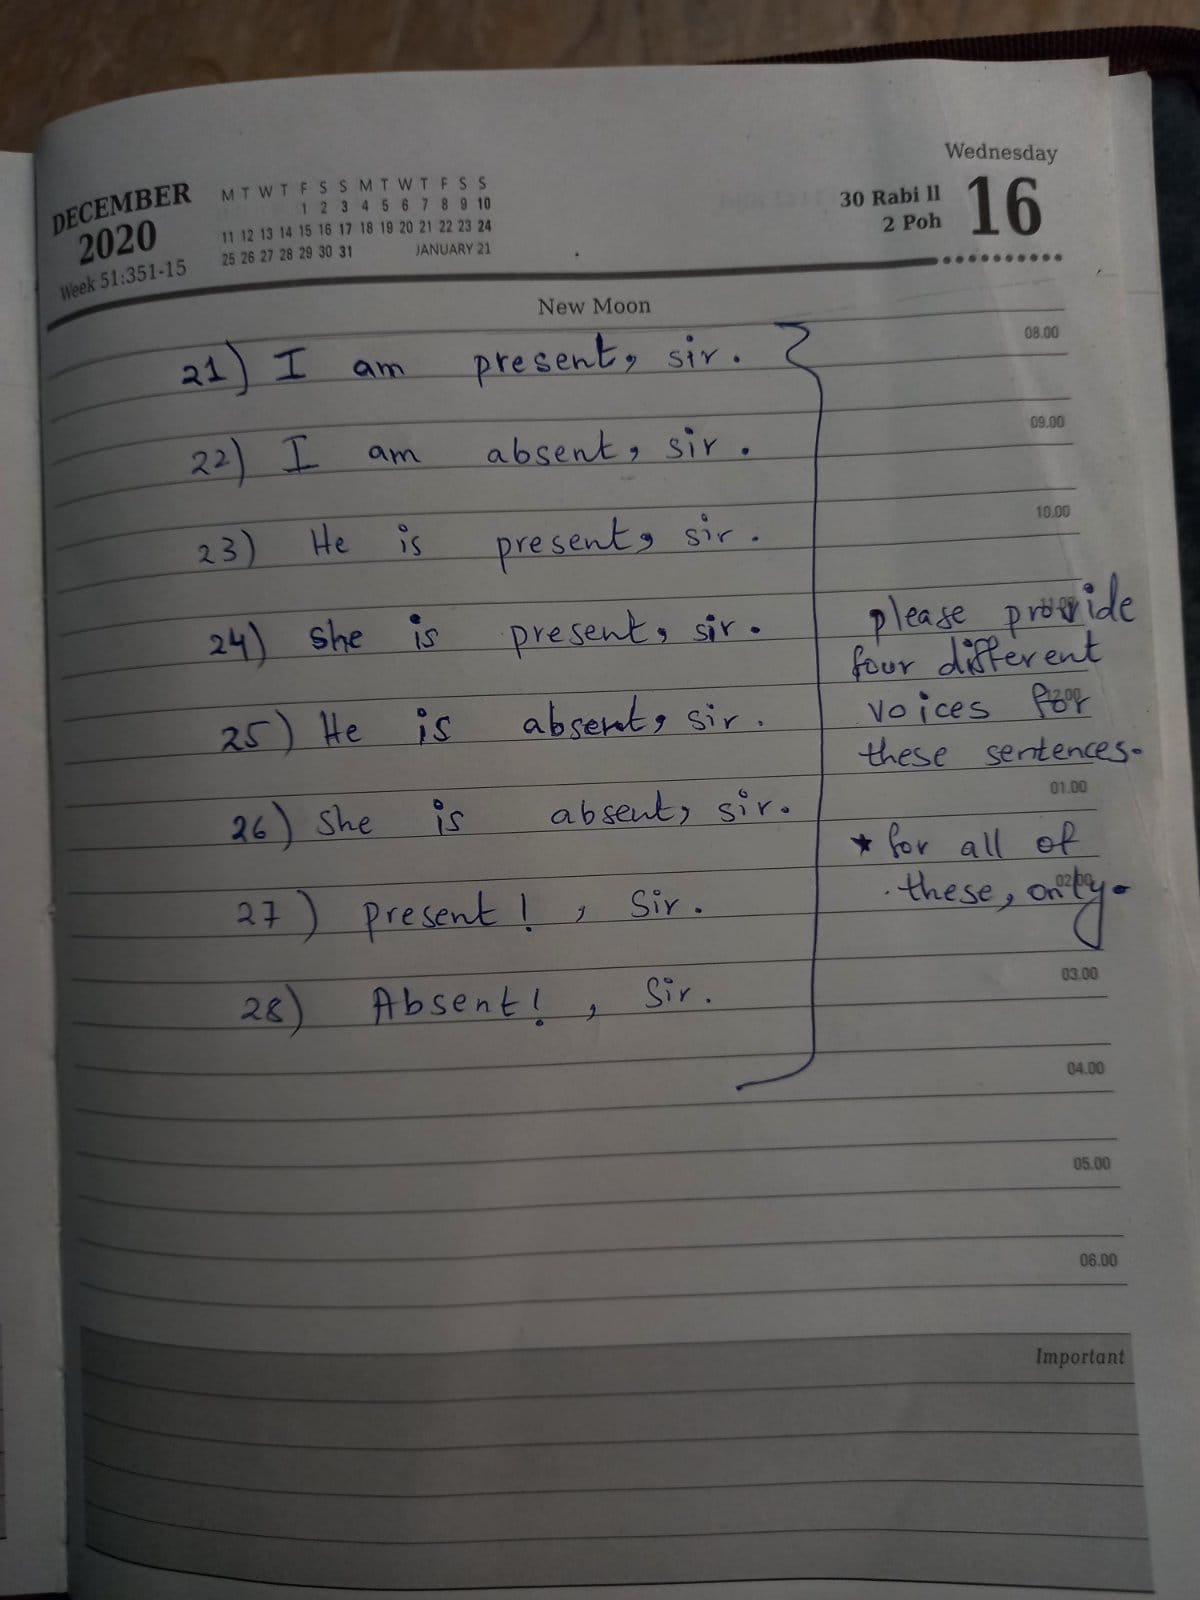 DECEMBER
2020
Week 51:351-15
M T W T F S S M T W T F S S
1 2 3 4 5 6 7 8 9 10
11 12 13 14 15 16 17 18 19 20 21 22 23 24
25 26 27 28 29 30 31 JANUARY 21
Wednesday
30 Rabi ll
2 Poh
16
New Moon
21) I am present, sir.
22) I am absent, sir.
23) He is present, sir.
24) She is present, sir.
25) He is absent, sir.
26) She is absent, sir.
27) present!, Sir.
28) Absent!, Sir.
please provide
four different
voices for
these sentences.
* for all of
these, only.
08.00
09.00
10.00
12.00
01.00
02.00
03.00
04.00
05.00
06.00
Important